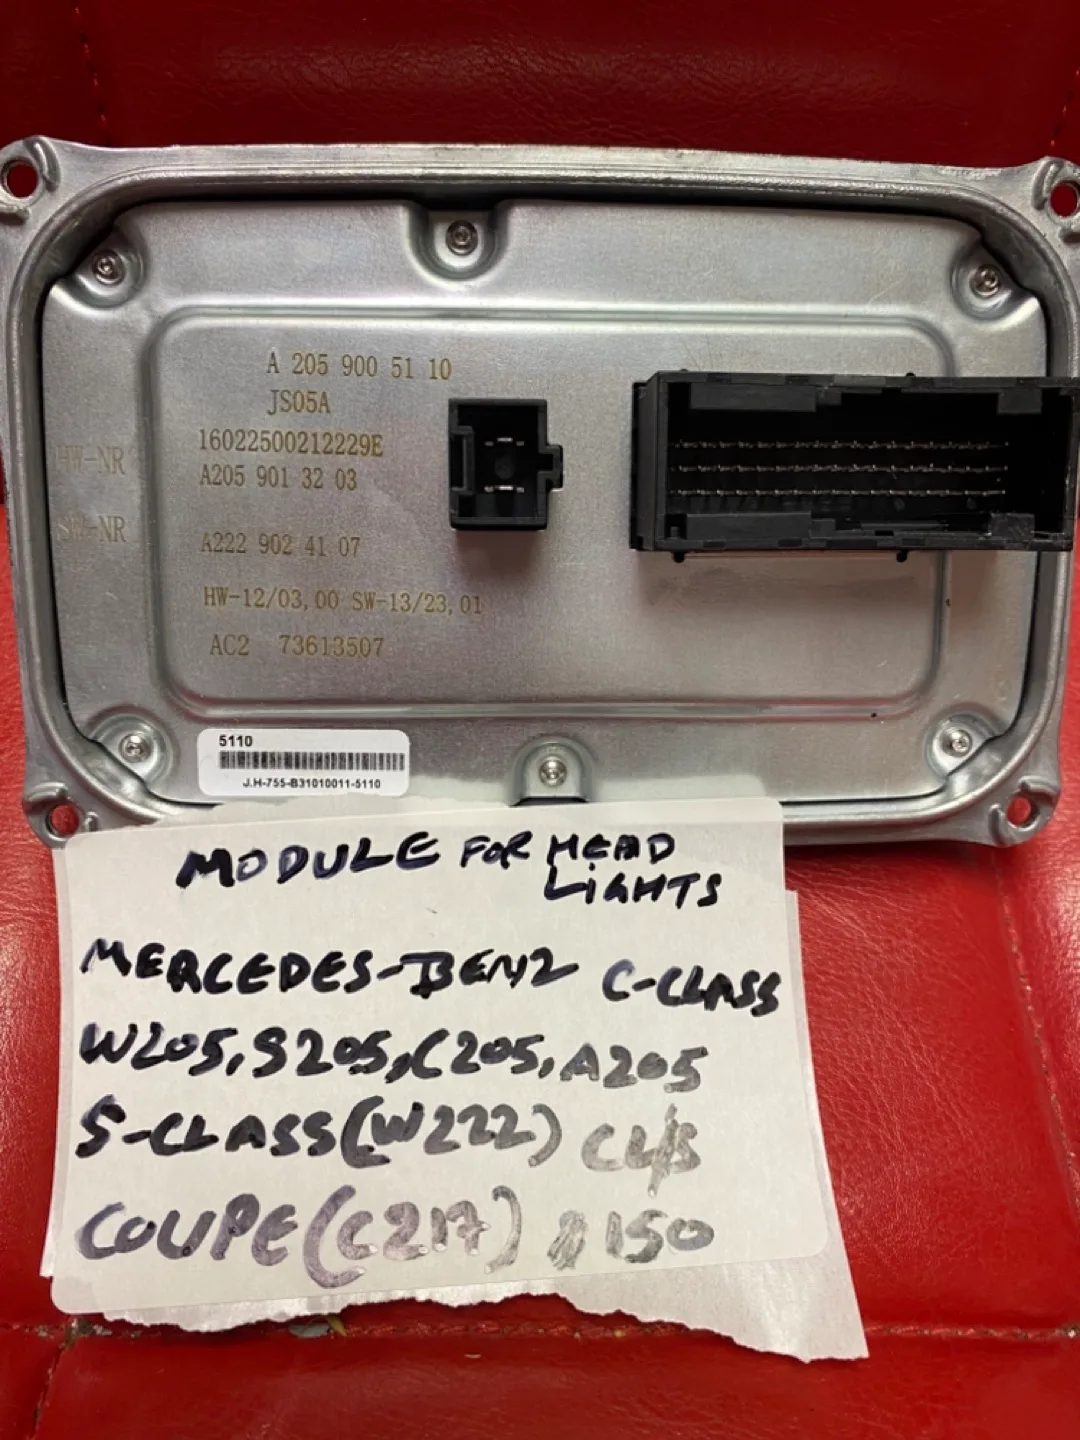 A 205 900 51 10
JS05A
16022500212229E
HW-NR A205 901 32 03
SW-NR A222 902 41 07
HW-12/03,00 SW-13/23,01
AC2 73613507
5110
J.H-755-B31010011-5110
MODULE FOR HEAD
LIGHTS
MERCEDES-BENZ C-CLASS
W205,S205,C205,A205
S-CLASS(W222)
COUPE(C217) $150